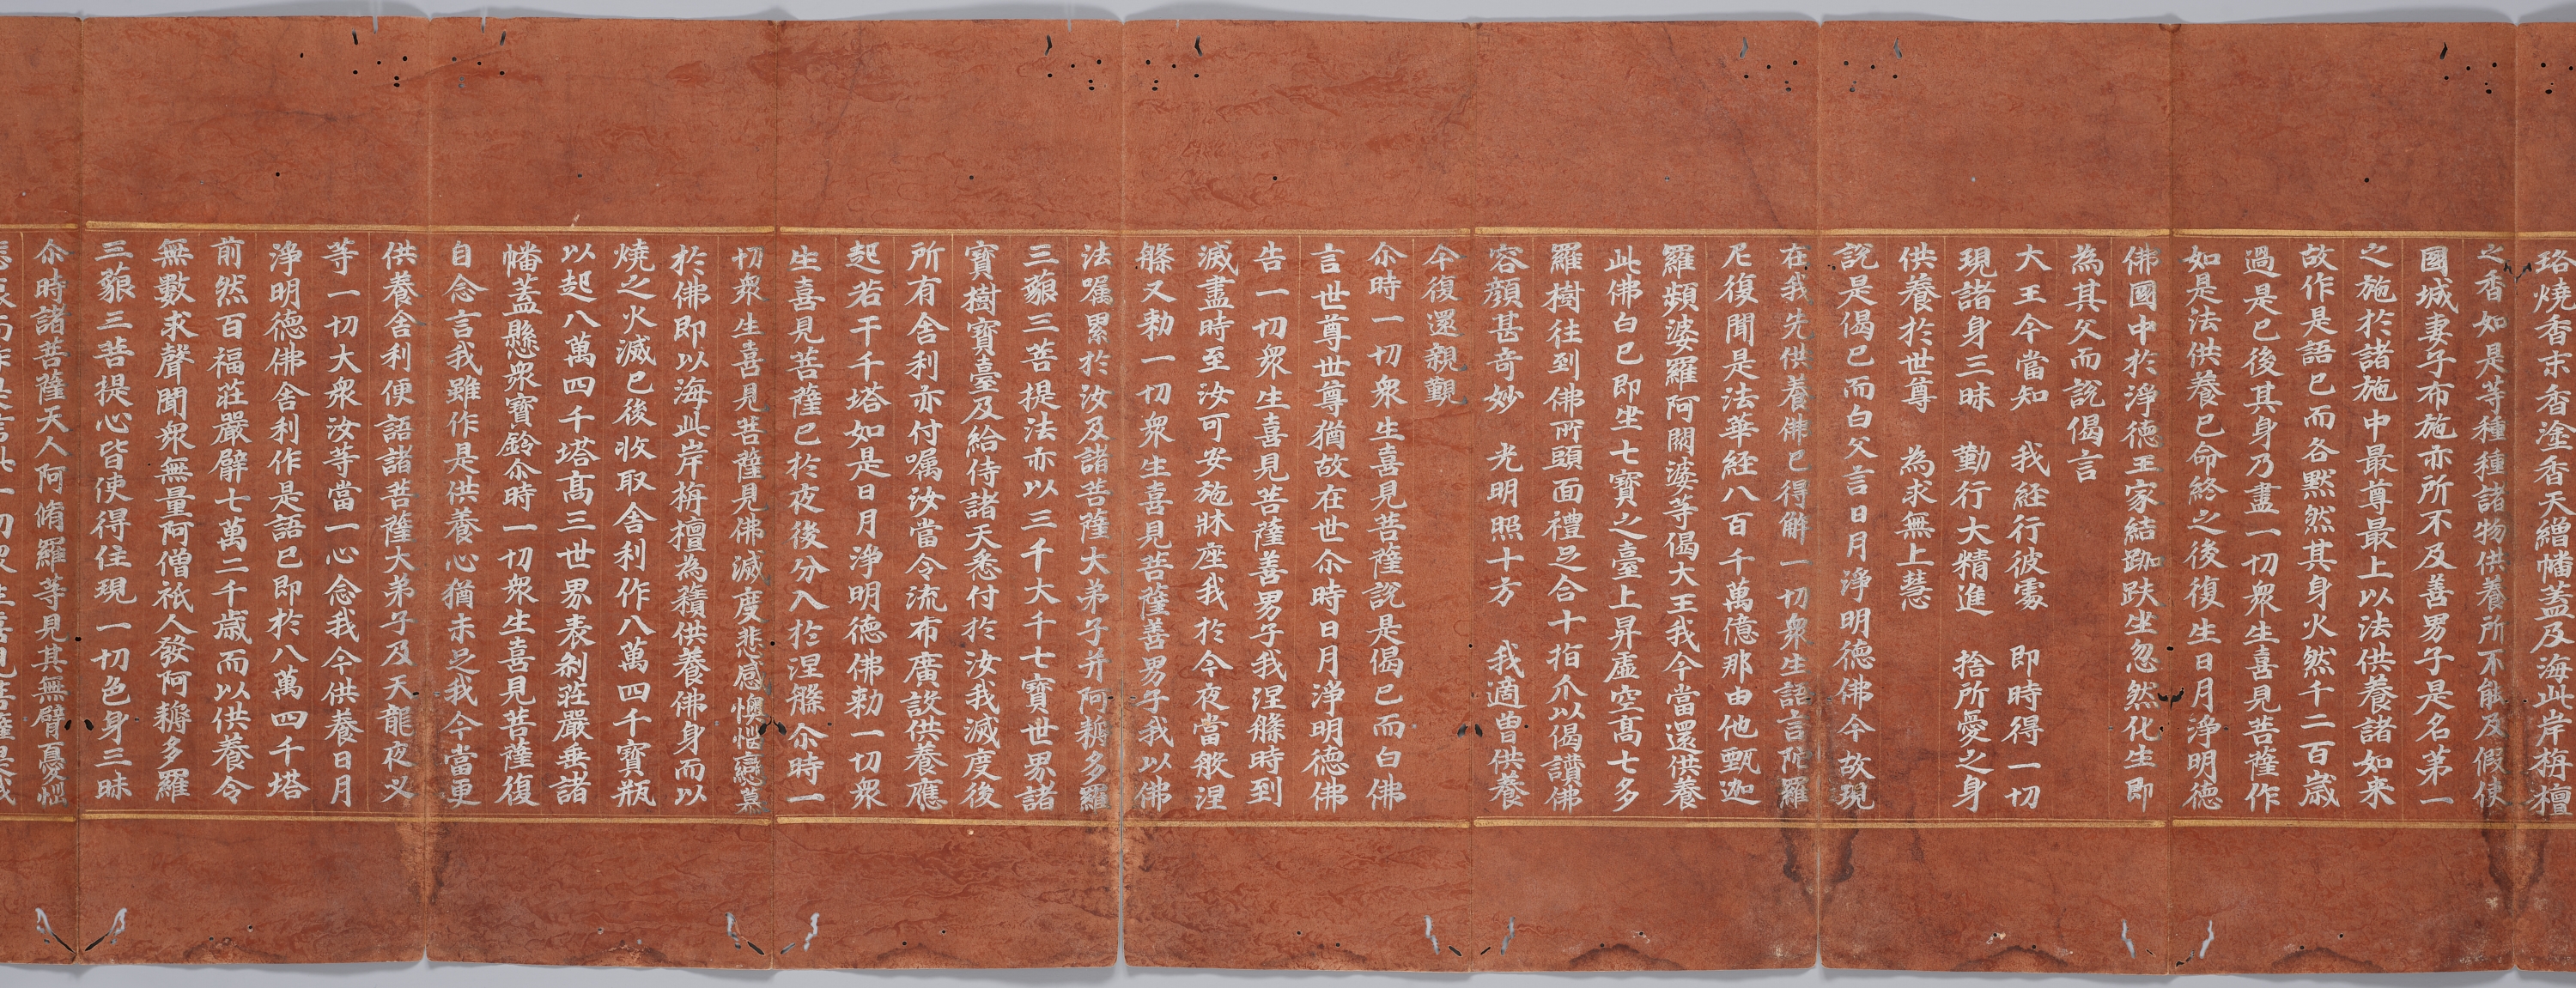 珞燒香末香塗香天繒幡蓋及海此岸栴檀
之香如是等種種諸物供養所不能及假使
國城妻子布施亦所不及善男子是名第一
之施於諸施中最尊最上以法供養諸如来
故作是語已而各黙然其身火然千二百歲
過是已後其身乃盡一切衆生喜見菩薩作
如是法供養已命終之後復生日月淨明德
佛國中於淨德王家結跏趺坐忽然化生即
為其父而說偈言
大王今當知　我經行彼處　即時得一切
現諸身三昧　勤行大精進　捨所愛之身
供養於世尊　為求無上慧
說是偈已而白父言日月淨明德佛今故現
在我先供養佛已得解一切衆生語言陀羅
尼復聞是法華經八百千萬億那由他甄迦
羅頻婆羅阿閦婆等偈大王我今當還供養
此佛白已即坐七寶之臺上昇虛空髙七多
羅樹往到佛所頭面禮足合十指爪以偈讚佛
容顏甚奇妙　光明照十方　我適曾供養
今復還親覲
尒時一切衆生喜見菩薩說是偈已而白佛
言世尊世尊猶故在世尒時日月淨明德佛
告一切衆生喜見菩薩善男子我涅槃時到
滅盡時至汝可安施牀座我於今夜當般涅
槃又勑一切衆生喜見菩薩善男子我以佛
法嘱累於汝及諸菩薩大弟子并阿耨多羅
三藐三菩提法亦以三千大千七寶世界諸
寶樹寶臺及給侍諸天悉付於汝我滅度後
所有舍利亦付嘱汝當令流布廣設供養應
起若干千塔如是日月淨明德佛勑一切衆
生喜見菩薩已於夜後分入於涅槃尒時一
切衆生喜見菩薩見佛滅度悲感懊惱戀慕
於佛即以海此岸栴檀為𧂐供養佛身而以
燒之火滅已後收取舍利作八萬四千寶瓶
以起八萬四千塔髙三世界表剎莊嚴垂諸
幡蓋懸衆寶鈴尒時一切衆生喜見菩薩復
自念言我雖作是供養心猶未足我今當更
供養舍利便語諸菩薩大弟子及天龍夜叉
等一切大衆汝等當一心念我今供養日月
淨明德佛舍利作是語已即於八萬四千塔
前然百福莊嚴臂七萬二千歲而以供養令
無數求聲聞衆無量阿僧祇人發阿耨多羅
三藐三菩提心皆使得住現一切色身三昧
尒時諸菩薩天人阿脩羅等見其無臂憂惱